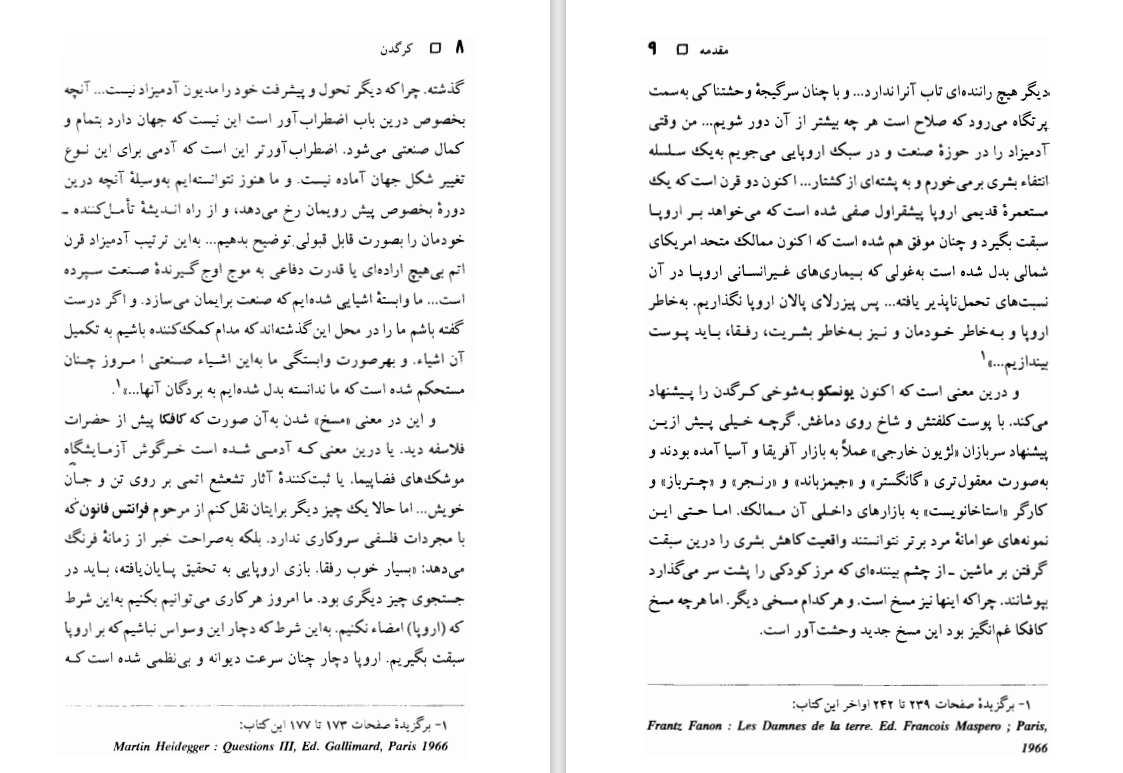 ۸ □ کرگدن
گذشته. چراکه دیگر تحول و پیشرفت خود را مدیون آدمیزاد نیست... آنچه
بخصوص درین باب اضطراب‌آور است این نیست که جهان دارد بتمام و
کمال صنعتی می‌شود. اضطراب‌آورتر این است که آدمی برای این نوع
تغییر شکل جهان آماده نیست. و ما هنوز نتوانسته‌ایم به‌وسیلهٔ آنچه درین
دورهٔ بخصوص پیش رویمان رخ می‌دهد، و از راه اندیشهٔ تأمل‌کننده ـ
خودمان را بصورت قابل قبولی توضیح بدهیم... به‌این ترتیب آدمیزاد قرن
اتم بی‌هیچ اراده‌ای یا قدرت دفاعی به موج اوج‌گیرندهٔ صنعت سپرده
است... ما وابستهٔ اشیایی شده‌ایم که صنعت برایمان می‌سازد. و اگر درست
گفته باشم ما را در محل این گذشته‌اند که مدام کمک‌کننده باشیم به تکمیل
آن اشیاء. و بهرصورت وابستگی ما به‌این اشیاء صنعتی امروز چنان
مستحکم شده است که ما ندانسته بدل شده‌ایم به بردگان آنها...»۱.
و این در معنی «مسخ» شدن به‌آن صورت که کافکا پیش از حضرات
فلاسفه دید. یا درین معنی که آدمی شده است خرگوش آزمایشگاه
موشک‌های فضاپیما. یا ثبت‌کنندهٔ آثار تشعشع اتمی بر روی تن و جان
خویش... اما حالا یک چیز دیگر برایتان نقل کنم از مرحوم فرانتس فانون که
با مجردات فلسفی سروکاری ندارد. بلکه به‌صراحت خبر از زمانهٔ فرنگ
می‌دهد: «بسیار خوب رفقا. بازی اروپایی به تحقیق پایان‌یافته، باید در
جستجوی چیز دیگری بود. ما امروز هر کاری می‌توانیم بکنیم به‌این شرط
که (اروپا) امضاء نکنیم. به‌این شرط که دچار این وسواس نباشیم که بر اروپا
سبقت بگیریم. اروپا دچار چنان سرعت دیوانه و بی‌نظمی شده است که
۱- برگزیدهٔ صفحات ۱۷۳ تا ۱۷۷ این کتاب:
Martin Heidegger : Questions III, Ed. Gallimard, Paris 1966
مقدمه □ ۹
دیگر هیچ راننده‌ای تاب آنرا ندارد... و با چنان سرگیجهٔ وحشتناکی به‌سمت
پرتگاه می‌رود که صلاح است هر چه بیشتر از آن دور شویم... من وقتی
آدمیزاد را در حوزهٔ صنعت و در سبک اروپایی می‌جویم به‌یک سلسله
انتفاء بشری برمی‌خورم و به پشته‌ای از کشتار... اکنون دو قرن است که یک
مستعمرهٔ قدیمی اروپا پیشقراول صفی شده است که می‌خواهد بر اروپا
سبقت بگیرد و چنان موفق هم شده است که اکنون ممالک متحد امریکای
شمالی بدل شده است به‌غولی که بیماری‌های غیرانسانی اروپا در آن
نسبت‌های تحمل‌ناپذیر یافته... پس پیزرلای پالان اروپا نگذاریم. به‌خاطر
اروپا و به‌خاطر خودمان و نیز به‌خاطر بشریت، رفقا، باید پوست
بیندازیم...»۱
و درین معنی است که اکنون یونسکو به‌شوخی کرگدن را پیشنهاد
می‌کند. با پوست کلفتش و شاخ روی دماغش. گرچه خیلی پیش ازین
پیشنهاد سربازان «لژیون خارجی» عملاً به بازار آفریقا و آسیا آمده بودند و
به‌صورت معقول‌تری «گانگستر» و «جیمزباند» و «رنجر» و «چترباز» و
کارگر «استاخانویست» به بازارهای داخلی آن ممالک. اما حتی این
نمونه‌های عوامانهٔ مرد برتر نتوانستند واقعیت کاهش بشری را درین سبقت
گرفتن بر ماشین ـ از چشم بیننده‌ای که مرز کودکی را پشت سر می‌گذارد
بپوشانند. چراکه اینها نیز مسخ است. و هر کدام مسخی دیگر. اما هرچه مسخ
کافکا غم‌انگیز بود این مسخ جدید وحشت‌آور است.
۱- برگزیدهٔ صفحات ۲۳۹ تا ۲۴۲ اواخر این کتاب:
Frantz Fanon : Les Damnes de la terre. Ed. Francois Maspero ; Paris,
1966